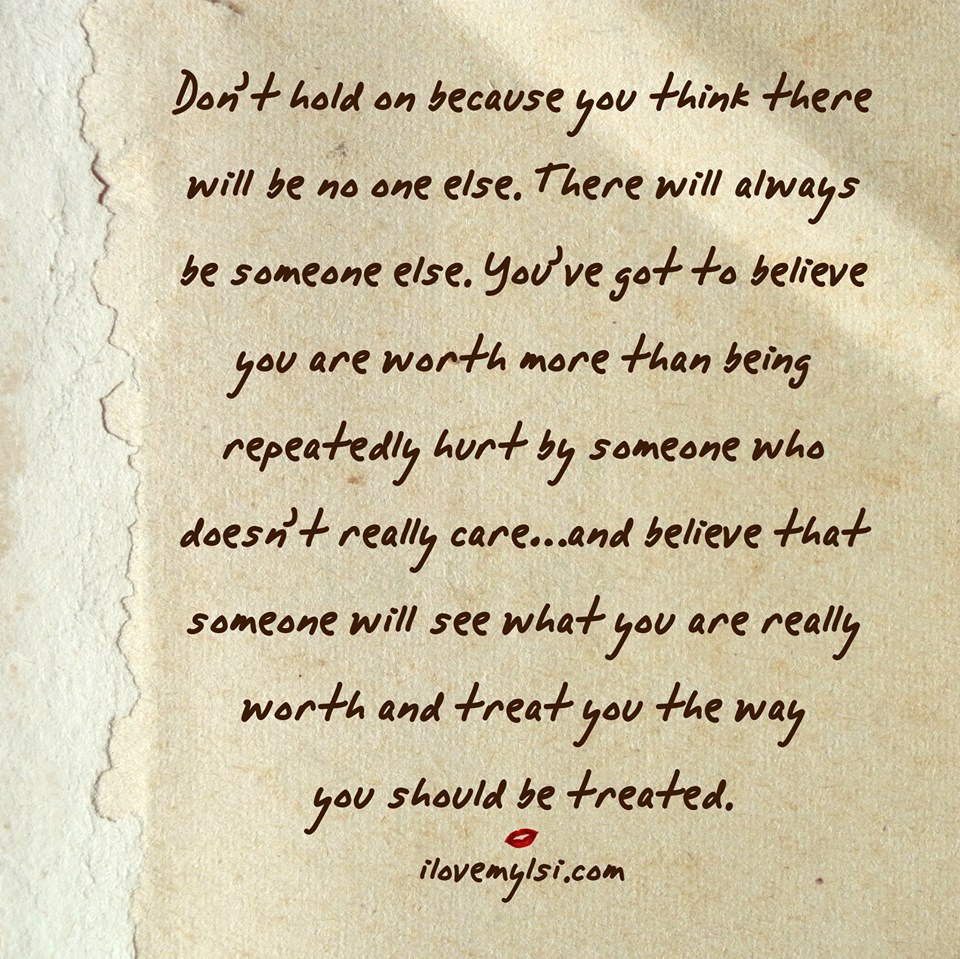 Don't hold on because you think there
will be no one else. There will always
be someone else. You've got to believe
you are worth more than being
repeatedly hurt by someone who
doesn't really care...and believe that
someone will see what you are really
worth and treat you the way
you should be treated.
ilovemylsi.com